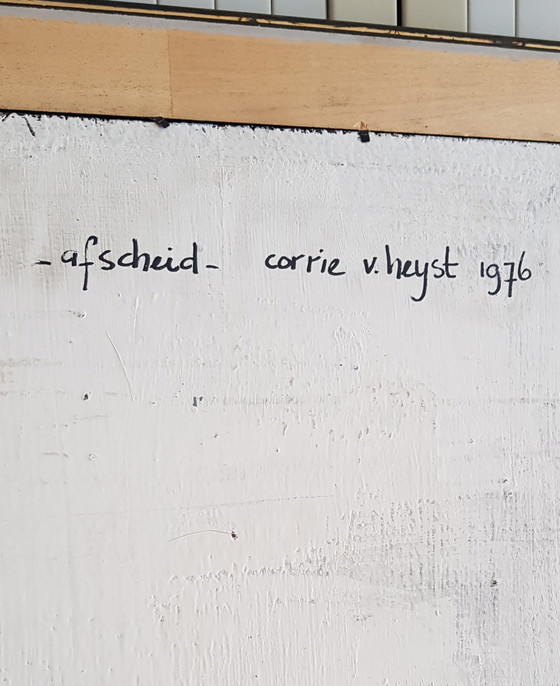 - afscheid - corrie v. heyst 1976